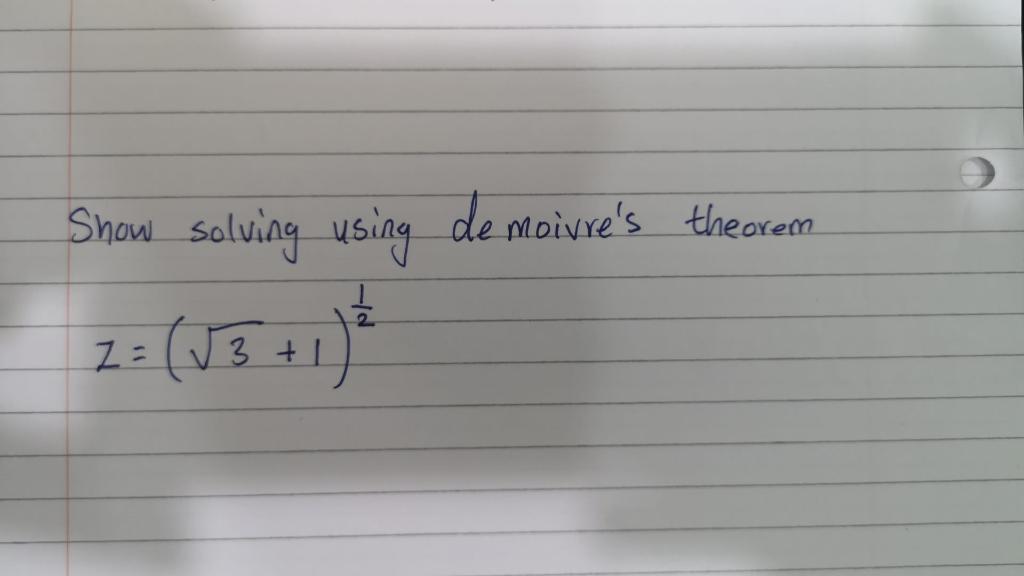 Show solving using de moivre's theorem
z = (√3 + 1)^(1/2)